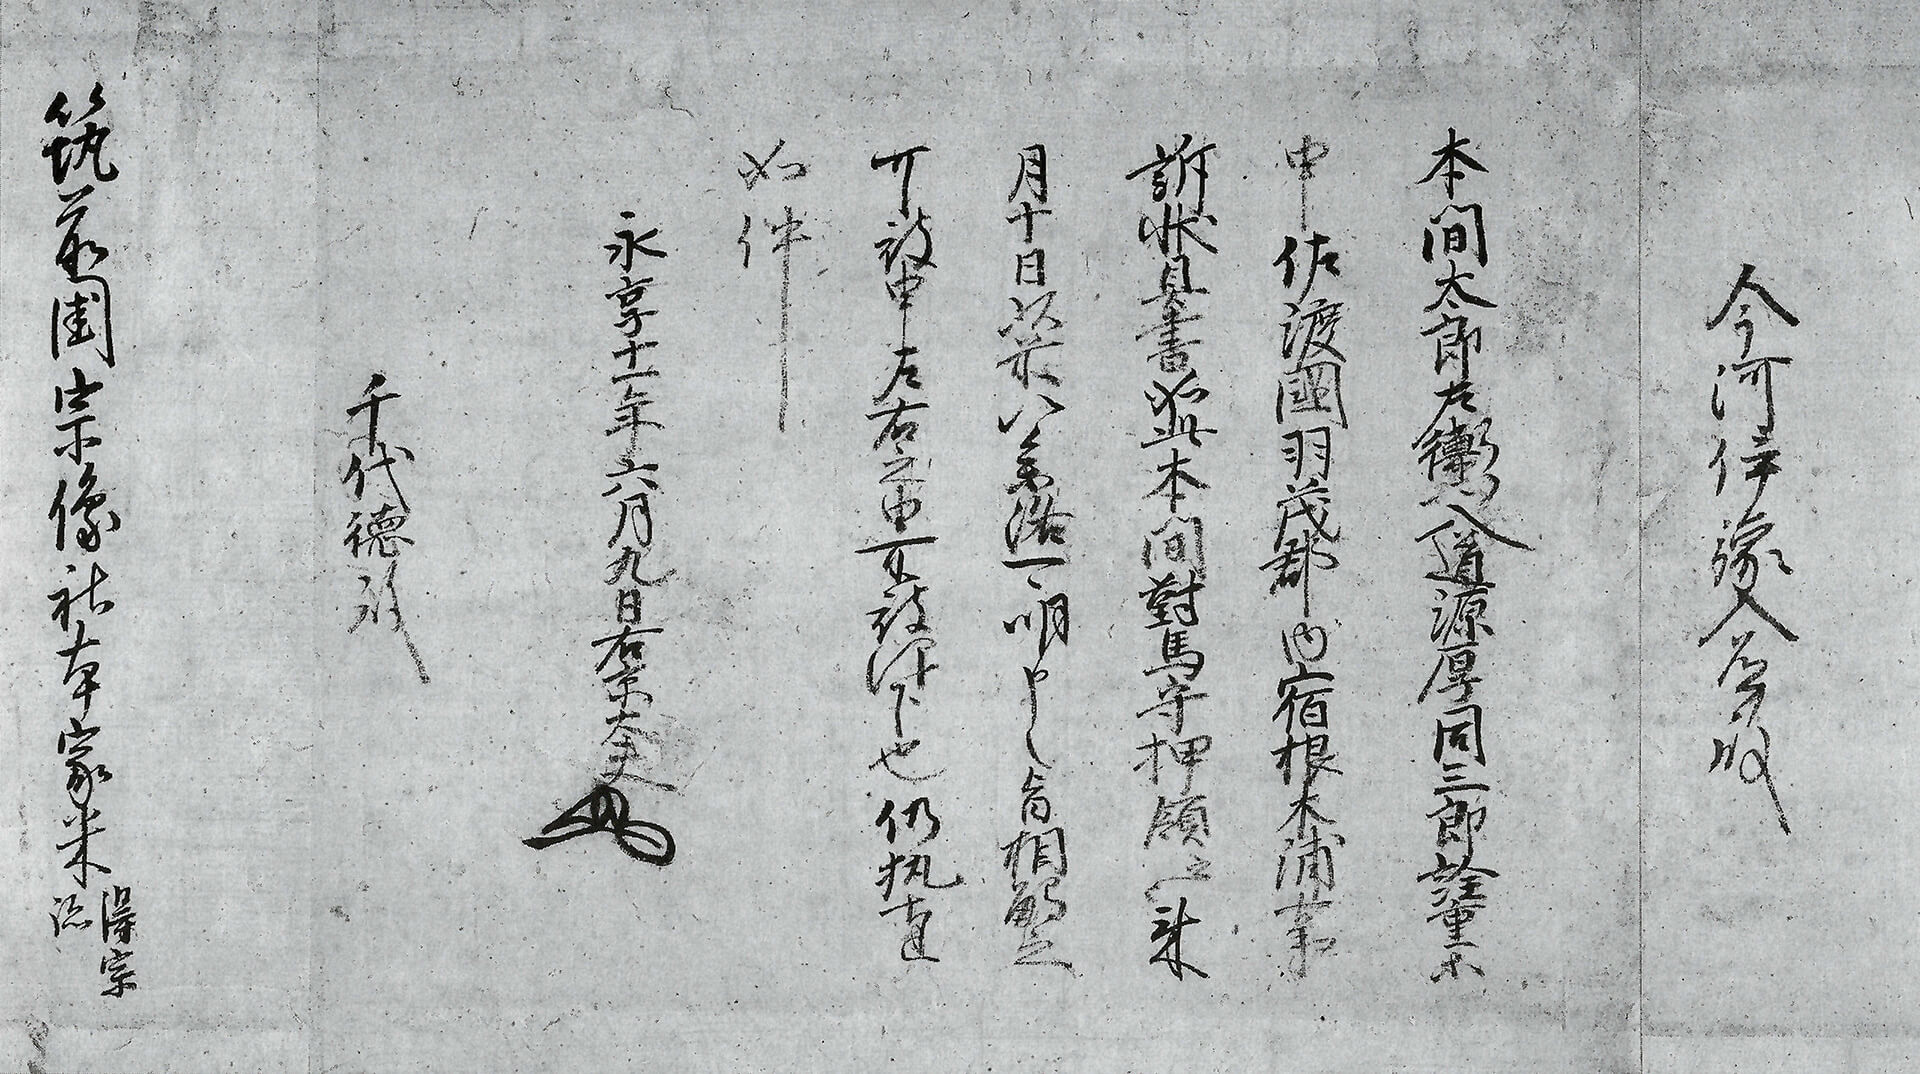 今河伊豫入道殿
本間太郎左衛門入道源厚同三郎詮重等
申佐渡國羽茂郡内宿根木浦事
訴状具書如此本間對馬守押領云々来
月十日以前參洛可明申之旨相觸之
可被申左右之由所被仰下也仍執達
如件
永享十一年六月九日右京大夫
千代徳殿
筑前國宗像社本家米得宗跡